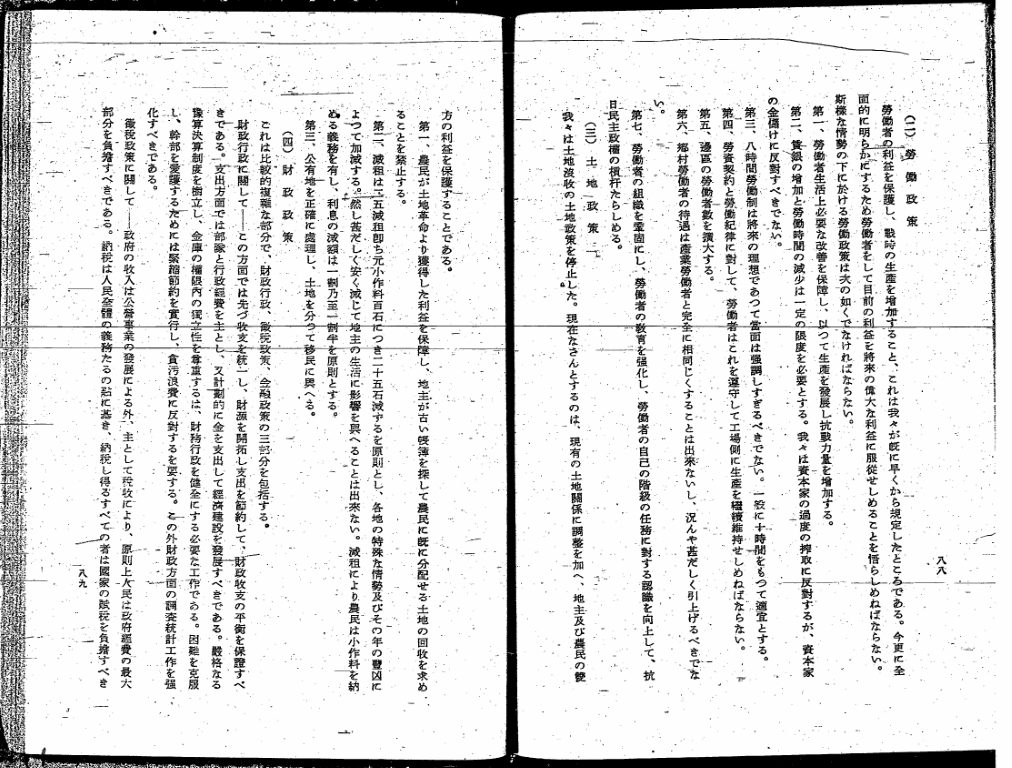 (二) 勞働政策
勞働者の利益を保護し、戰時の生產を增加すること、これは我々が旣に早くから規定したところである。今更に全
面的に明らかにするため勞働者をして目前の利益を將來の偉大な利益に服從せしめることを悟らしめねばならない。
斯樣な情勢の下に於ける勞働政策は次の如くでなければならない。
第一、勞働者生活上必要な改善を保障し、以つて生產を發展し抗戰力量を增加する。
第二、賃銀の增加と勞働時間の減少は一定の限度を必要とする。我々は資本家の過度の搾取に反對するが、資本家
の金儲けに反對すべきでない。
第三、八時間勞働制は將來の理想であつて當面は强調しすぎるべきでない。一般に十時間をもつて適宜とする。
第四、勞資契約と勞働紀律に對して、勞働者はこれを遵守して工場側に生產を積極維持せしめねばならない。
第五、邊區の勞働者數を擴大する。
第六、鄕村勞働者の待遇は產業勞働者と完全に相同じくすることは出來ないし、況んや甚だしく引上げるべきでな
い。
第七、勞働者の組織を鞏固にし、勞働者の敎育を强化し、勞働者の自己の階級の任務に對する認識を向上して、抗
日民主政權の槓杆たらしめる。
(三) 土地政策
我々は土地沒收の土地政策を停止した。現在なさんとするのは、現有の土地關係に調整を加へ、地主及び農民の雙
八八
方の利益を保護することである。
第一、農民が土地革命より獲得した利益を保障し、地主が古い帳簿を探して農民に旣に分配せる土地の回收を求め
ることを禁止する。
第二、減租は二五減租卽ち元小作料百石につき二十五石減ずるを原則とし、各地の特殊な情勢及びその年の豐凶に
よつて加減する。然し甚だしく安く減じて地主の生活に影響を與へることは出來ない。減租により農民は小作料を納
める義務を有し、利息の減額は一割乃至一割半を原則とする。
第三、公有地を正確に處理し、土地を分つて移民に與へる。
(四) 財政政策
これは比較的複雜な部分で、財政行政、徵稅政策、金融政策の三部分を包括する。
財政行政に關して——この方面では先づ收支を統一し、財源を開拓し支出を節約して、財政收支の平衡を保證すべ
きである。支出方面では部隊と行政經費を主とし、又計劃的に金を支出して經濟建設を發展すべきである。嚴格なる
豫算決算制度を樹立し、金庫の權限內の獨立性を尊重するは、財務行政を健全にする必要な工作である。困難を克服
し、幹部を愛護するためには緊縮節約を實行し、貪污浪費に反對するを要する。この外財政方面の調査統計工作を强
化すべきである。
徵稅政策に關して——政府の收入は公營事業の發展による外、主として稅收により、原則上人民は政府經費の最大
部分を負擔すべきである。納稅は人民全體の義務たるの點に基き、納稅し得るすべての者は國家の賦稅を負擔すべき
八九